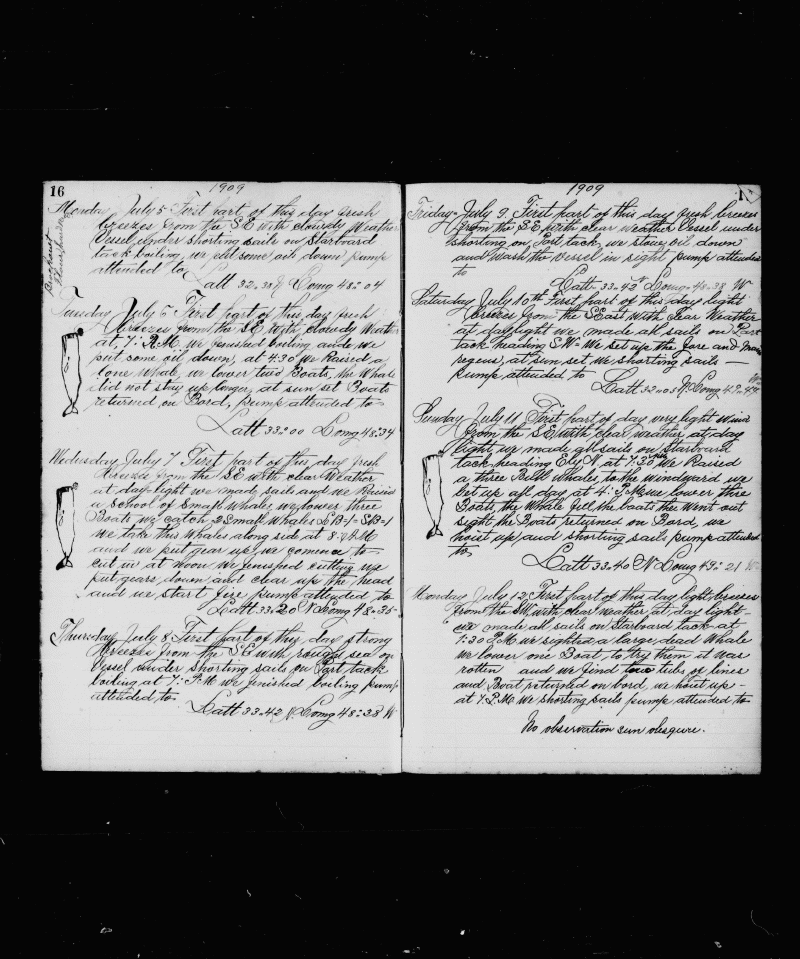 16
1909
Monday July 5 First part of this day fresh
breezes from the S E with cloudy Weather
Vessel under shorting sails on Starboard
tack boiling, we put some oil down pump
attended to
Latt 32.38 N Long 48:04
Tuesday July 6 First part of this day fresh
breezes from the S E with cloudy Weather
at 7: P.M we fenished boiling and we
put some oil down, at 4.30 we Raised a
lone whale, we lower two Boats, the Whale
did not stay up longer, at sun set Boats
returned on Bord, pump attended to
Latt 33:00 Long 48:34
Wednesday July 7 First part of this day fresh
breezes from the S E with clear Weather
at day-light we made sails and we Raised
a school of Small Whales we lower three
Boats we catch 2 Small Whales LB-1- SB-1
we take this Whales along side at 8- A.M
and we put gear up, we comence to-
cut in at noon we fenished cutting up
put gears down and clear up the head
and we start fire pump attended to
Latt 33:20 N Long 48:35-
Thursday July 8 First part of this day strong
breezes from the S E with rough sea on
Vessel under shorting sails on Port tack
boiling at 7: P.M we fenished boiling pump
attended to-
Latt 33.42 N Long 48:38 W
1909
Friday- July 9. First part of this day fresh breezes
from the S E with clear weather Vessel under
shorting on Port tack, we stove oil down
and Wash the Vessel in sight pump attended
to
Latt- 33.42 N Long- 48.38 W
Saturday July 10th First part of this day light
breezes from the S East with clear Weather
at day light we made all sails on Port
tack heading S.W. We set up the fore and main
at sun set we shorting sails
pump attended to
Latt 33:08 N Long 49.49
Sunday July 11 First part of day very light wind
from the S E with clear weather at day
light we made all sails on Starboard
tack heading Ely N. at 7:30 we Raised
a three Bull whales, to the windward, we
let up all day at 4: P.M we lower three
Boats, the Whale fell the boats the Went out
sight the Boats returned on Bord, we
hoist up and shorting sails pump attended
to
Latt 33.40 N Long 49: 21
Monday July 12: First part of this day light breezes
from the SW with clear weather at day light
we made all sails on Starboard tack at
1:30 P.M we sighted a large dead Whale
we lower one Boat to try them it was
rotten and we find tubs of lines
and Boat returned on bord, we hoist up-
at 7. P.M. we shorting sails pump attended to-
No observation sun obsqure.